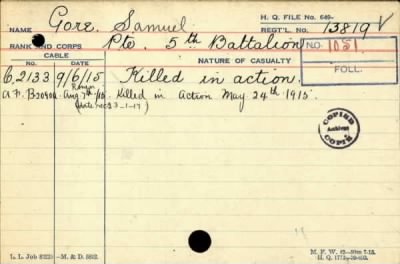 NAME Gore, Samuel H. Q. FILE No. 649-
REGT'L. No. 13819 V
RANK AND CORPS Pte. 5th Battalion NO. 1051.
CABLE
No. DATE NATURE OF CASUALTY FOLL.
C.2133 9/6/15 Killed in action.
A.F. B2090a Aug 7th/15 Killed in Action May 24th 1915.
(date recd 3-1-17)
COPIED
Archives
COPIÉ
L. L. Job 8223-M. & D. 5812.
M. F. W. 42-
H. Q. 1772-39-